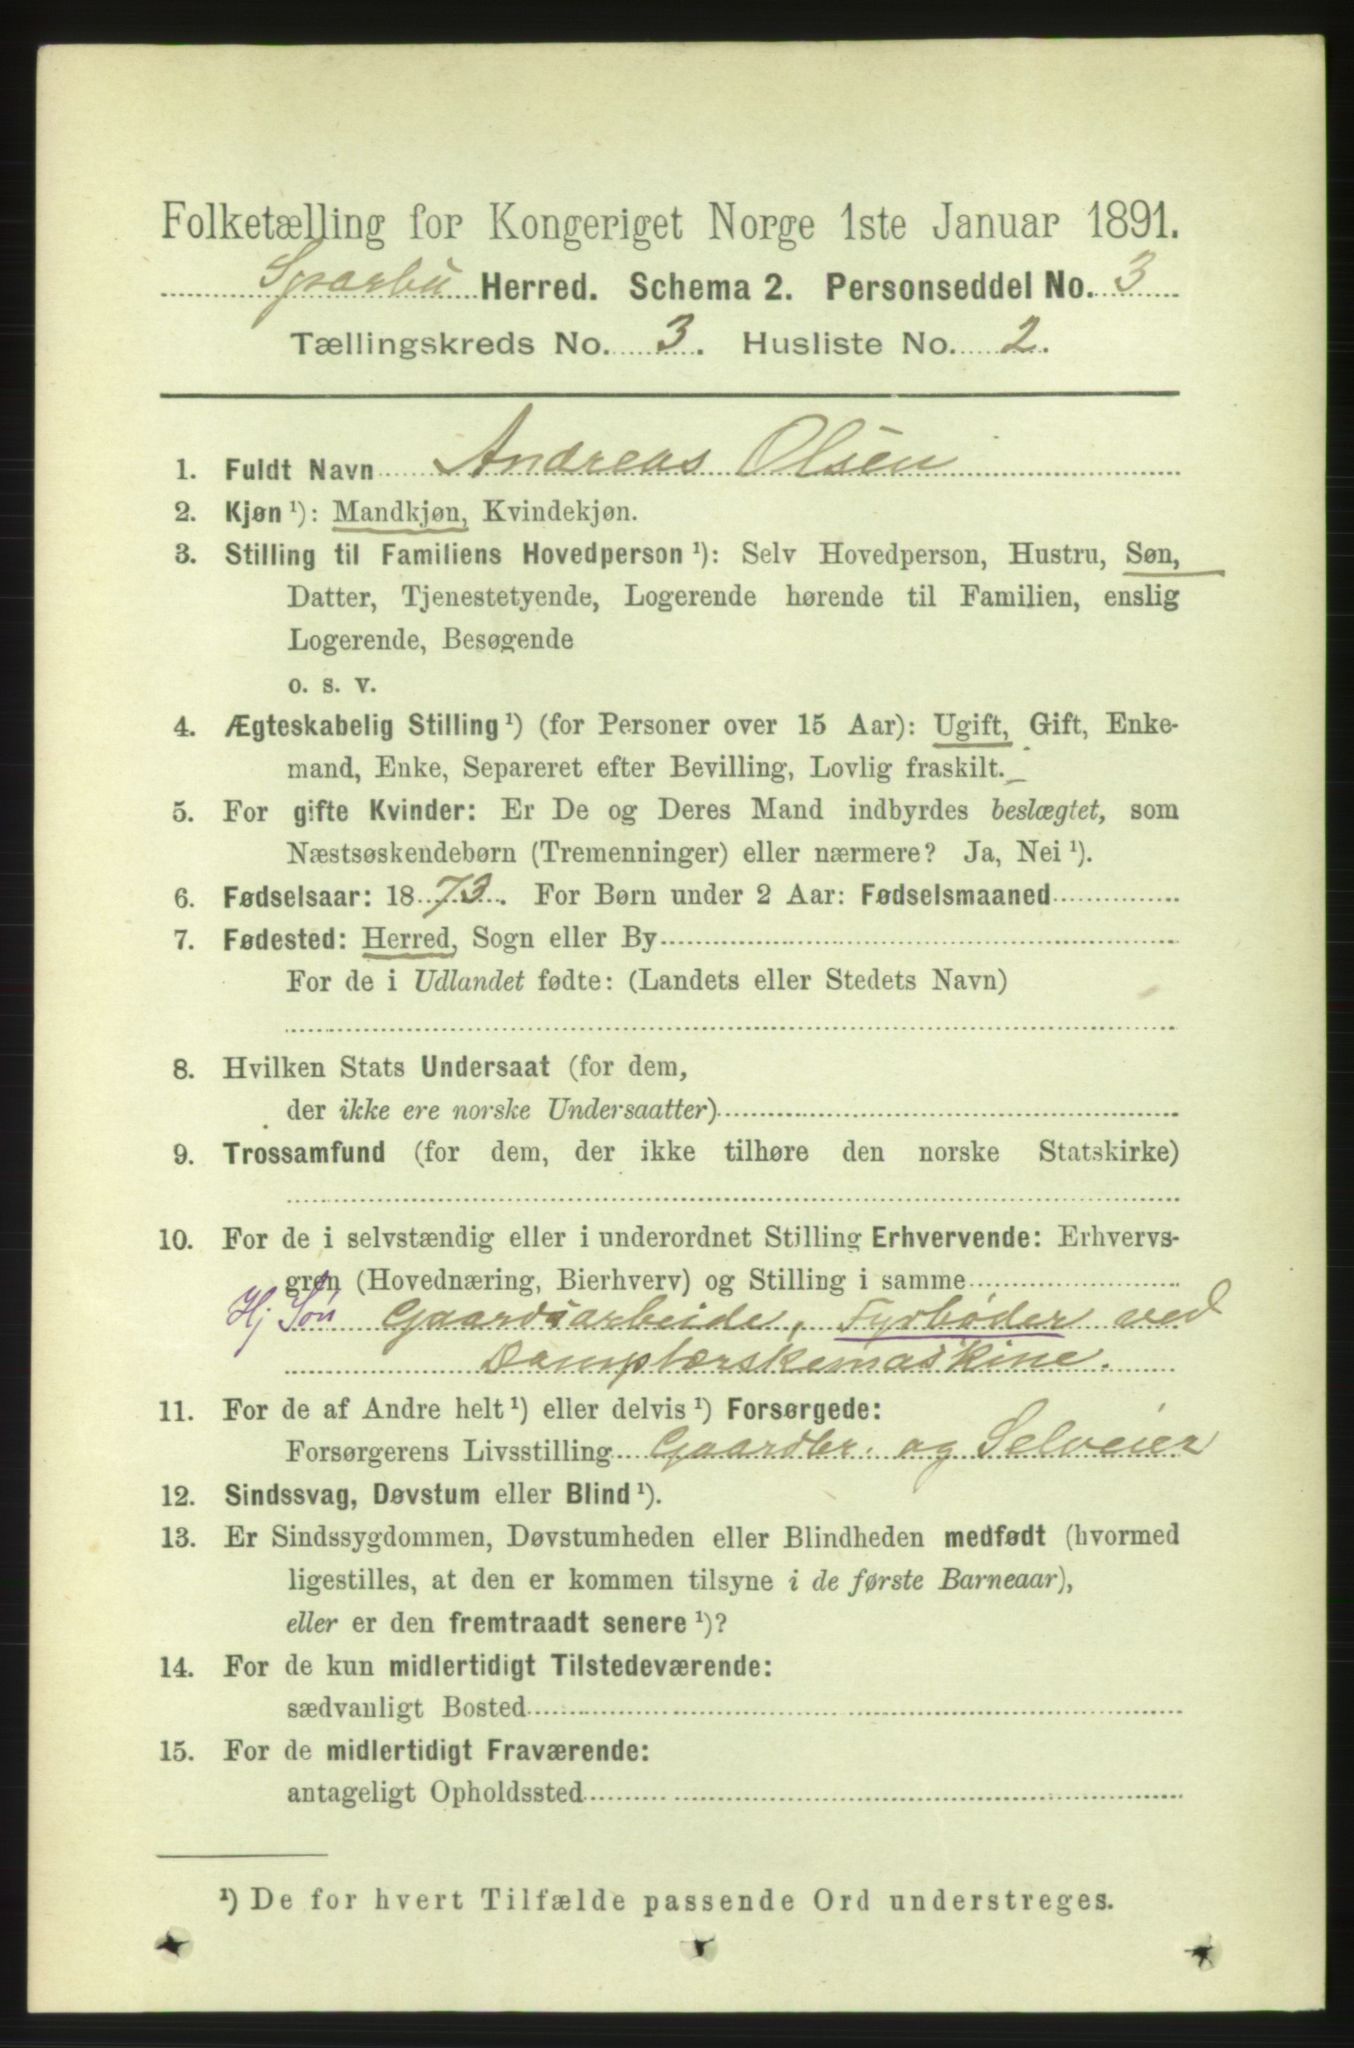 Folketælling for Kongeriget Norge 1ste Januar 1891.
Sparbu Herred. Schema 2. Personseddel No. 3
Tællingskreds No. 3. Husliste No. 2.
1. Fuldt Navn Andreas Olsen
2. Kjøn ¹): Mandkjøn, Kvindekjøn.
3. Stilling til Familiens Hovedperson ¹): Selv Hovedperson, Hustru, Søn,
Datter, Tjenestetyende, Logerende hørende til Familien, enslig
Logerende, Besøgende
o. s. v.
4. Ægteskabelig Stilling ¹) (for Personer over 15 Aar): Ugift, Gift, Enke-
mand, Enke, Separeret efter Bevilling, Lovlig fraskilt.
5. For gifte Kvinder: Er De og Deres Mand indbyrdes beslægtet, som
Næstsøskendebørn (Tremenninger) eller nærmere? Ja, Nei ¹).
6. Fødselsaar: 1873. For Børn under 2 Aar: Fødselsmaaned
7. Fødested: Herred, Sogn eller By
For de i Udlandet fødte: (Landets eller Stedets Navn)
8. Hvilken Stats Undersaat (for dem,
der ikke ere norske Undersaatter)
9. Trossamfund (for dem, der ikke tilhøre den norske Statskirke)
10. For de i selvstændig eller i underordnet Stilling Erhvervende: Erhvervs-
gren (Hovednæring, Bierhverv) og Stilling i samme
Hj Søn Gaardsarbeide, Fyrbøder ved
Damptærskemaskine.
11. For de af Andre helt ¹) eller delvis ¹) Forsørgede:
Forsørgerens Livsstilling Gaardbr. og Selveier
12. Sindssvag, Døvstum eller Blind ¹).
13. Er Sindssygdommen, Døvstumheden eller Blindheden medfødt (hvormed
ligestilles, at den er kommen tilsyne i de første Barneaar),
eller er den fremtraadt senere ¹)?
14. For de kun midlertidigt Tilstedeværende:
sædvanligt Bosted
15. For de midlertidigt Fraværende:
antageligt Opholdssted
¹) De for hvert Tilfælde passende Ord understreges.